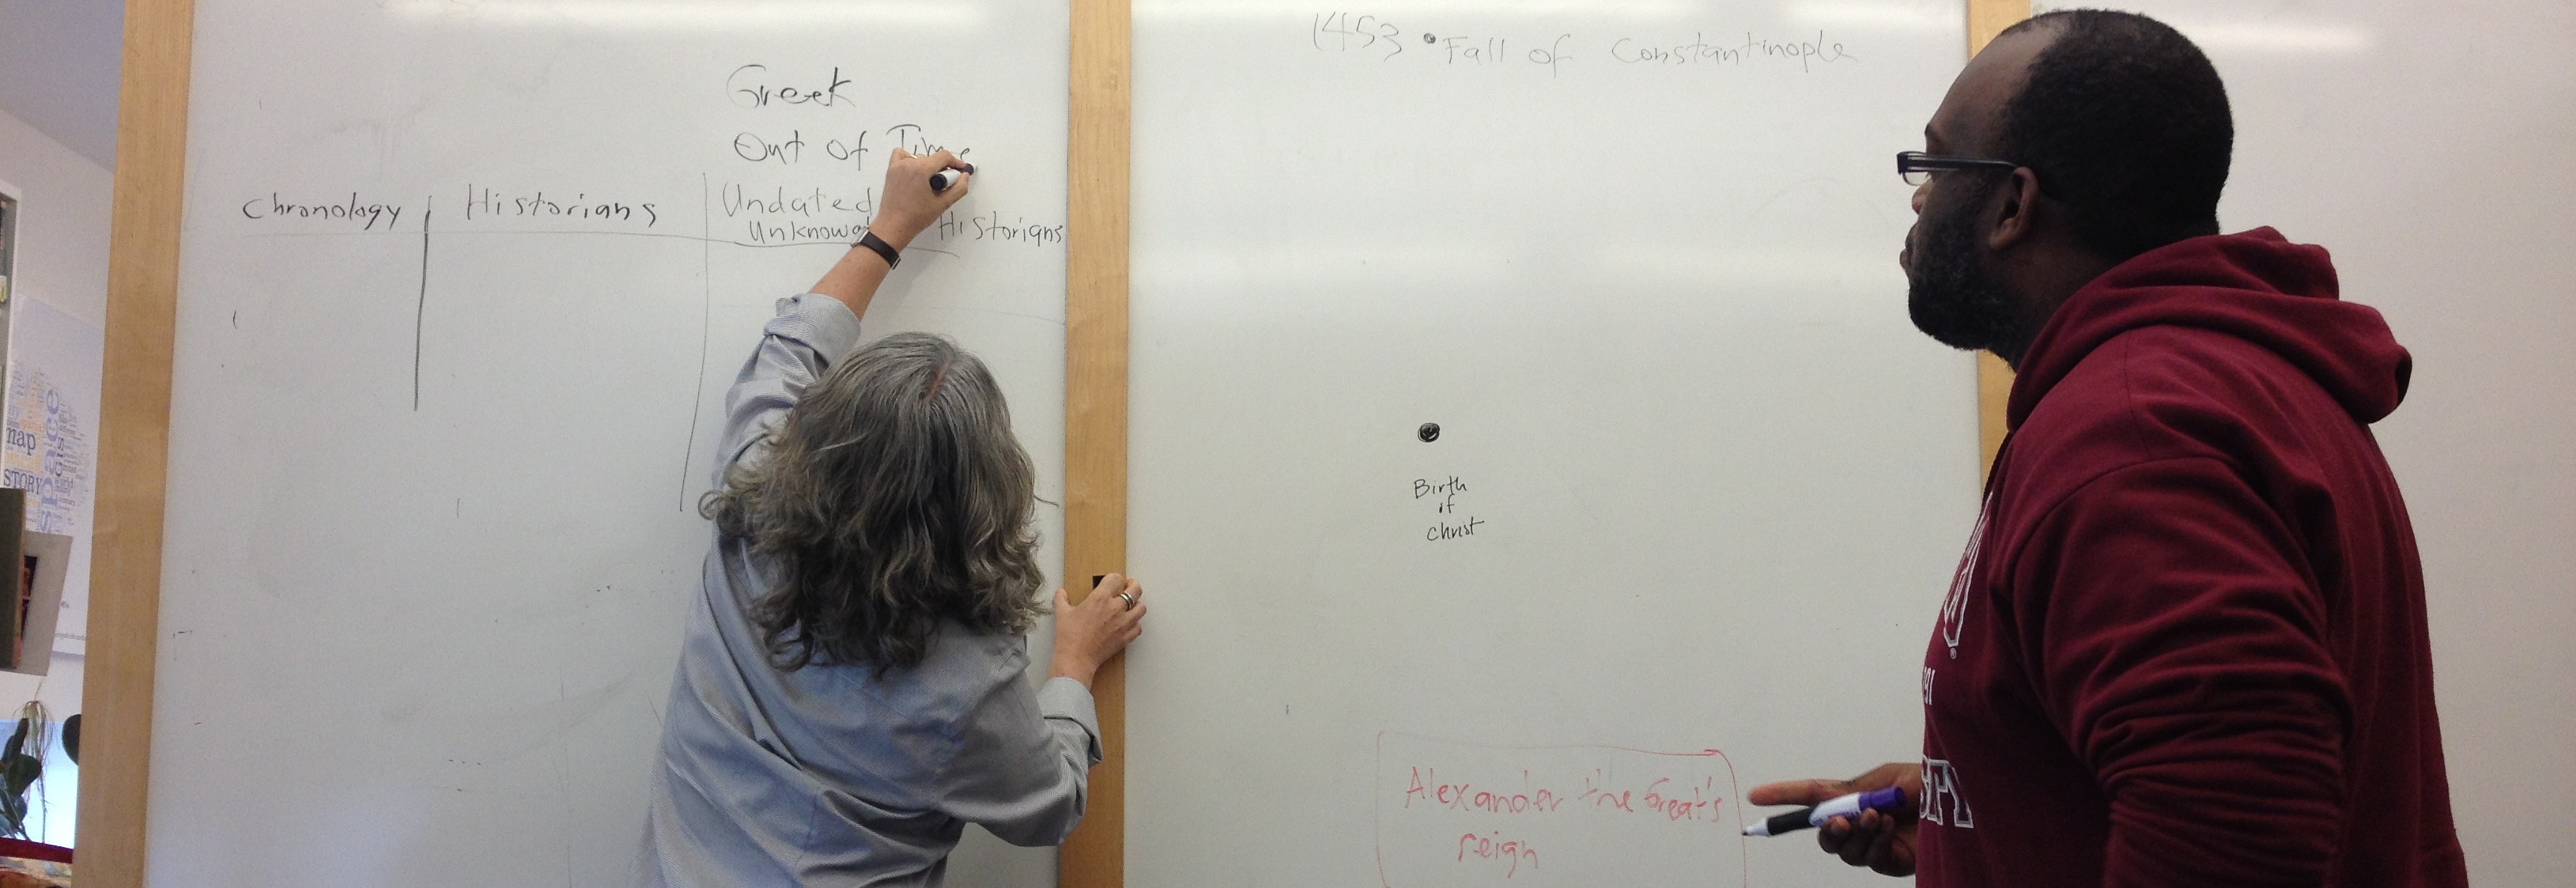 Greek
Out of Time
Chronology
Historians
Undated
Unknown Historians
1453 • Fall of Constantinople
Birth
of
Christ
Alexander the Great's
reign
map
STORY
space